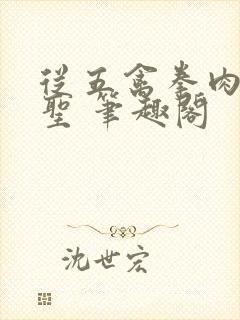 從五禽拳肉
聖 筆趣閣
沈世宏